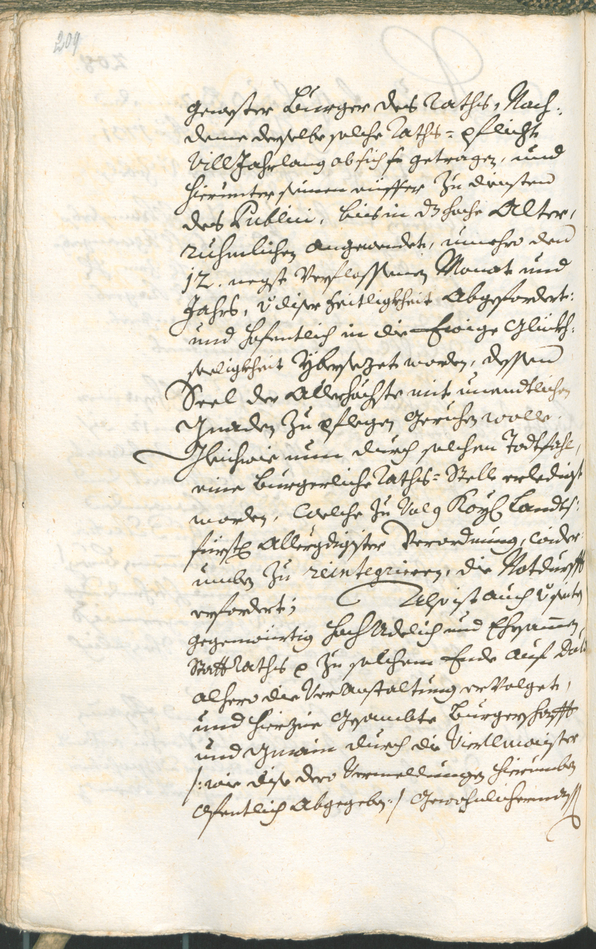 209
gewester Burger des Raths, Nach-
deme derselbe solche Raths-pflicht
vill Jahrlang ob sich getragen, und
hierunter seinen eüffer zu diensten
des Publici, bis in das hoche Alter,
rühmlichen angewendet, nunmehro den
12. negst verflossenen Monat und
Jahrs, v. diser Zeitligkheit Abgefordert:
und hofentlich in die Ewige Glückh-
seeligkheit yberseizet worden, dessen
Seel der Allerhöchste mit unendtlichen
Gnaden zu pflegen geruhen wolle.
Gleichwie nun durch solchen Todtfahl,
eine Burgerliche Raths-Stell erledigt
worden, welche zu volg Königl. Landts-
fürstl. Allergdigster Verordnung, wider
umben zu reintegrieren, die Notdurfft
erfordert; Also ist auch v. seiten
gegenwürtig hochAdelich und Ehrsammen
StattRaths p. zu solchem Ende auf Dato
alhero die VerAnstaltung ervolget,
und hierzue gesambte Burgerschafft
und Gmain durch die Viertlmaister
/: wie dise dero Vermeldungen hierumben
ofentlich Abgegeben :/ gewohnlichermassen